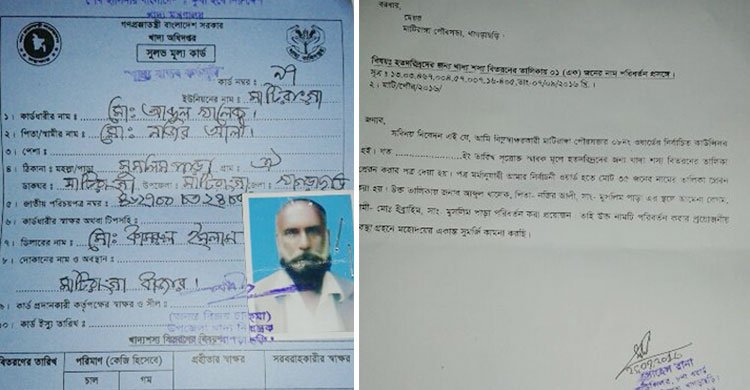 গণপ্রজাতন্ত্রী বাংলাদেশ সরকার
খাদ্য অধিদপ্তর
সুলভ মূল্য কার্ড
কার্ড নম্বর ঃ ৯৭
ইউনিয়নের নাম ঃ মাটিরাঙ্গা
১। কার্ডধারীর নাম ঃ মোঃ আব্দুল খালেক
২। পিতা/স্বামীর নাম ঃ মোঃ নজির আলী।
৩। পেশা ঃ
৪। ঠিকানা ঃ মহল্লা/পাড়া মুসলিম পাড়া গ্রাম ঃ ঐ
ডাকঘর মাটিরাঙ্গা উপজেলা মাটিরাঙ্গা জেলা খাগড়াছড়ি
৫। জাতীয় পরিচয়পত্র নম্বর ঃ
৬। কার্ডধারীর স্বাক্ষর অথবা টিপসহি ঃ
৭। ডিলারের নাম ঃ মোঃ কামরুল ইসলাম
৮। দোকানের নাম ও অবস্থান ঃ
মাটিরাঙ্গা বাজার।
৯। কার্ড প্রদানকারী কর্তৃপক্ষের স্বাক্ষর ও সীল ঃ
১০। কার্ড ইস্যু তারিখ ঃ
উপজেলা খাদ্য নিয়ন্ত্রক
খাদ্যশস্য বিতরণের বিবরণ
বিতরণের তারিখ পরিমাণ (কেজি হিসেবে) গ্রহীতার স্বাক্ষর সরবরাহকারীর স্বাক্ষর
চাল গম
বরাবর,
মেয়র
মাটিরাঙ্গা পৌরসভা, খাগড়াছড়ি।
বিষয়ঃ হতদরিদ্রদের জন্য খাদ্য শস্য বিতরনের তালিকায় ০১ (এক) জনের নাম পরিবর্তন প্রসঙ্গে।
সূত্র ঃ ১৩.০৩.৪৬৭.০০৪.৫৭.০০৭.১৬-৪০৫,তাং-০৭/০৯/২০১৬ খ্রি.।
২। মাটি/পৌর/২০১৬/
জনাব,
সবিনয় নিবেদন এই যে, আমি নিম্নস্বাক্ষরকারী মাটিরাঙ্গা পৌরসভার ০৮নং ওয়ার্ডের নির্বাচিত কাউন্সিলর
হই। যত ........ইং তারিখ সূত্রোক্ত স্মারক মূলে হতদরিদ্রদের জন্য খাদ্য শস্য বিতরনের তালিকা
প্রেরন করার পত্র দেয়া হয়। পত্র মর্মানুযায়ী আমার নির্বাচনী ওয়ার্ড হতে মোট ৩৫ জনের নামের তালিকা প্রেরন
করা হয়। উক্ত তালিকায় জনাব আব্দুল খালেক, পিতা- নজির আলী, সাং- মুসলিম পাড়া এর স্থলে আমেনা বেগম,
স্বামী- মোঃ ইব্রাহিম, সাং- মুসলিম পাড়া পরিবর্তন করা প্রয়োজন। তাই উক্ত নামটি পরিবর্তন করার প্রয়োজনীয়
ব্যবস্থা গ্রহনে মহোদয়ের একান্ত সুমর্জি কামনা করছি।
সোহেল রানা